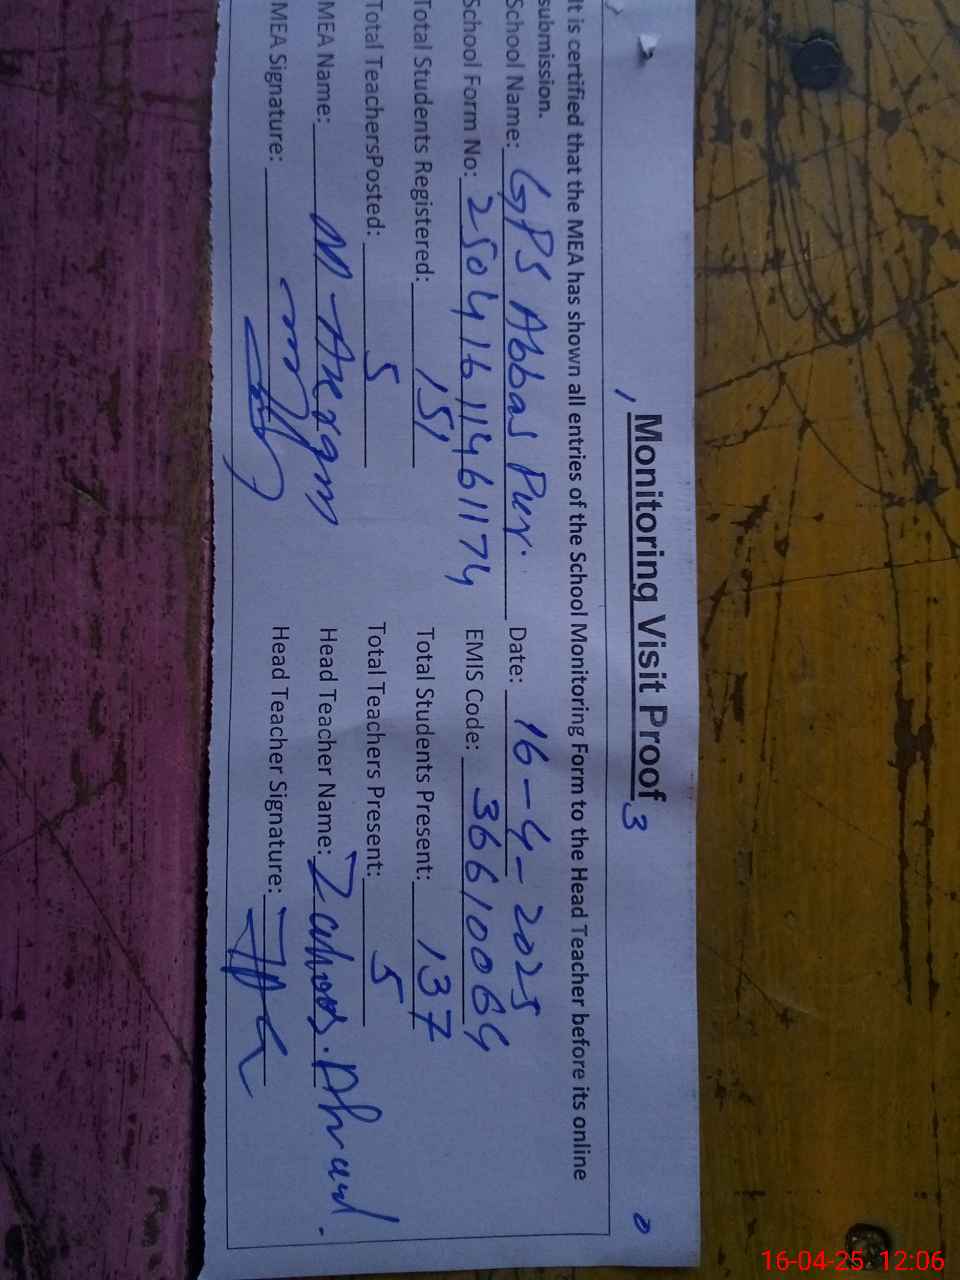 Monitoring Visit Proof 3
It is certified that the MEA has shown all entries of the School Monitoring Form to the Head Teacher before its online
submission.
School Name: GPS Abbas Pur. Date: 16-4-2025
School Form No: 25041611461174 EMIS Code: 36610069
Total Students Registered: 151 Total Students Present: 137
Total TeachersPosted: 5 Total Teachers Present: 5
MEA Name: M Head Teacher Name:
MEA Signature: Head Teacher Signature:
16-04-25 12:06